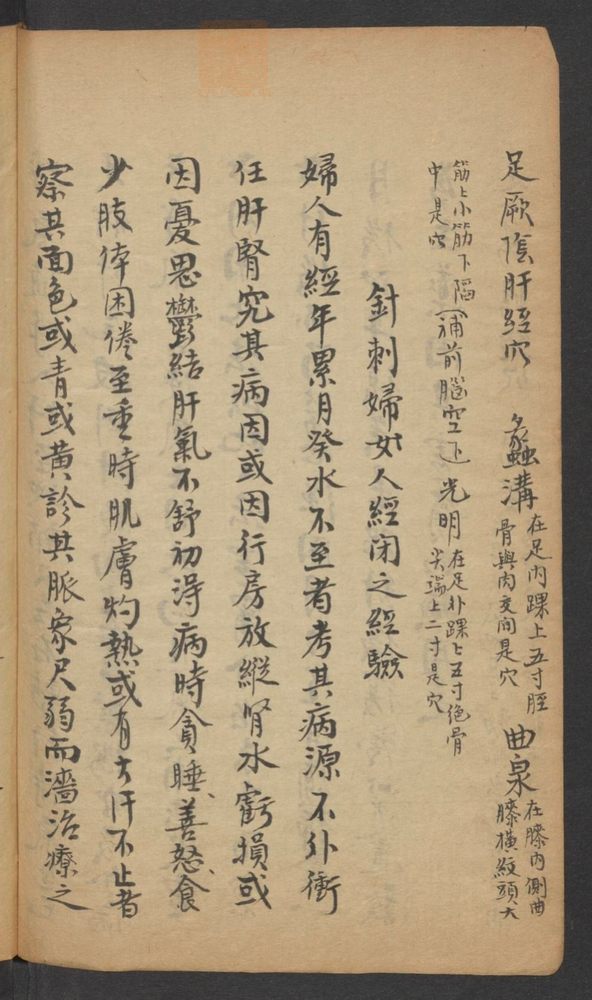 足厥陰肝經穴　蠡溝 在足內踝上五寸脛骨與肉交間是穴　曲泉 在膝內側曲膝橫紋頭大
筋上小筋下陷中是穴 (補前腦空下) 光明 在足外踝上五寸絕骨尖端上二寸是穴
針刺婦女人經闭之經驗
婦人有經年累月癸水不至者考其病源不外衝
任肝腎究其病因或因行房放縱肾水虧損或
因憂思鬱結肝氣不舒初淂病時貪睡、善怒、食
少肢体困倦至重時肌膚灼熱或有大汗不止者
察其面色或青或黃診其脈象尺弱而濇治療之